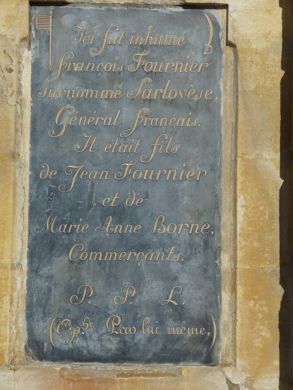 Ici fut inhumé
François Fournier
surnommé Sarlovèse.
Général français.
Il était fils
de Jean Fournier
et de
Marie Anne Borne,
Commerçants.
P. P. L.
(Eph: Par lui même,)